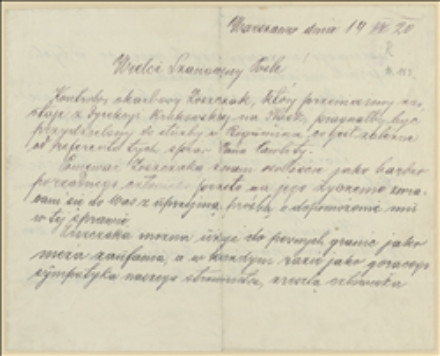 Warszawa dnia 19 20
Wielce Szanowny Pośle
Kontrolor skarbowy Zoszczak, który przeniesiony zo-
staje z Dyrekcji Krakowskiej na Kock, pragnąłby być
przydzielony do służby w, co jest zależne
od Referenta tych spraw Pana
Ponieważ Zoszczaka znam osobiście jako bardzo
porządnego człowieka przeto na jego życzenie zwra-
cam się do Was z uprzejmą prośbą o dopomożenie mu
w tej sprawie
Zoszczaka można użyć do pewnych granic jako
męża zaufania, a w każdym razie jako gorącego
sympatyka naszego stronnictwa, zresztą człowieka